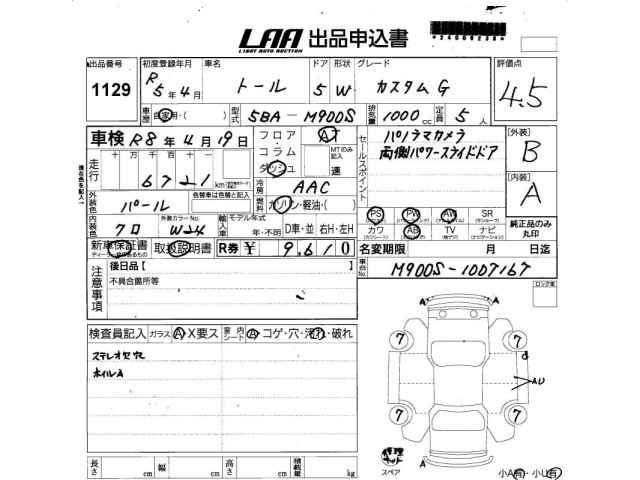 LAA 出品申込書
LIGHT AUTO AUCTION
出品番号 1129
初度登録年月 R 5年4月
車名 トール
ドア 5 形状 W
グレード カスタムG
評価点 4.5
車歴 自家用・( )
型式 5BA-M900S
排気量 1000 cc
定員 5 人
車検 R8年4月19日
フロア・コラム ダッシュ
AT
MTのみ記入 速
セールスポイント
パノラマカメラ
両側パワースライドドア
[外装] B
[内装] A
走行 十万千百十一
6721 km
冷房 AAC
外装色 パール
色替車は色替と記入
燃料 ガソリン・軽油・( )
内装色 クロ
外装カラーNo. W24
輸入車 モデル年式 年・不明
D車・並 右H・左H
PS PW AW SR (サンルーフ)
カワ (カワシート) AB TV ナビ (ナビゲーション)
純正品のみ丸印
新車保証書 取扱説明書
R券 ¥ 9,610
名変期限 月 日迄
注意事項
後日品【 】
不具合箇所等
車台No. M900S-1007167
ロック車
検査員記入 ガラス A X要ス
室内シート A・コゲ・穴・汚れ・破れ
ステレオ欠穴
ホイルA
長さ cm 幅 cm 高さ cm 積載量 kg
A A
7 7
AU
7 7
A
修理キット
スペア
小A有・小U有
現在色を記入